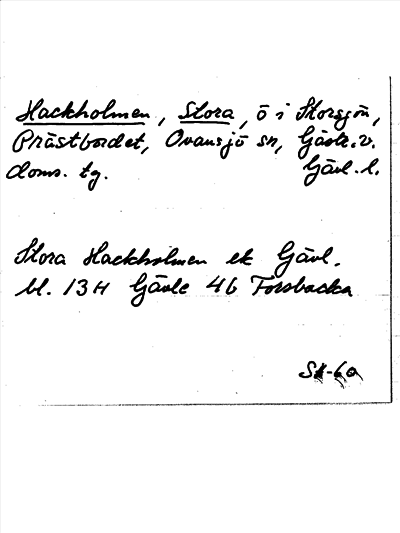 Hackholmen, Stora, ö i Storsjön,
Prästbordet, Ovansjö sn, Gävle v.
doms. tg. Gävl. l.
Stora Hackholmen ek Gävl.
bl. 13H Gävle 4b Forsbacka